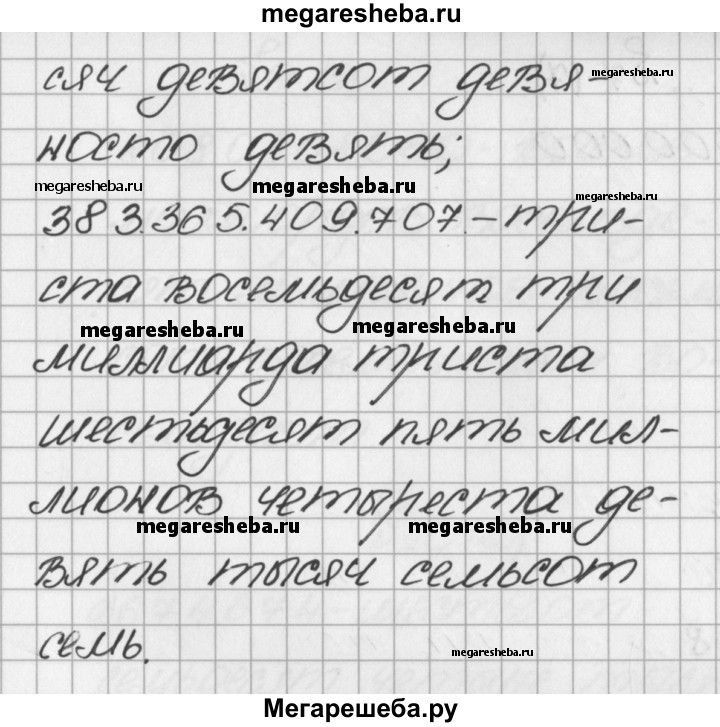 megaresheba.ru
сяч девятсот девя-
megaresheba.ru
носто девять;
megaresheba.ru megaresheba.ru megaresheba.ru
383.365.409.707.-три-
ста восемьдесят три
megaresheba.ru megaresheba.ru
миллиарда триста
шестьдесят пять мил-
лионов четыреста де-
megaresheba.ru megaresheba.ru
вять тысяч семьсот
семь.
megaresheba.ru
Мегарешеба.ру